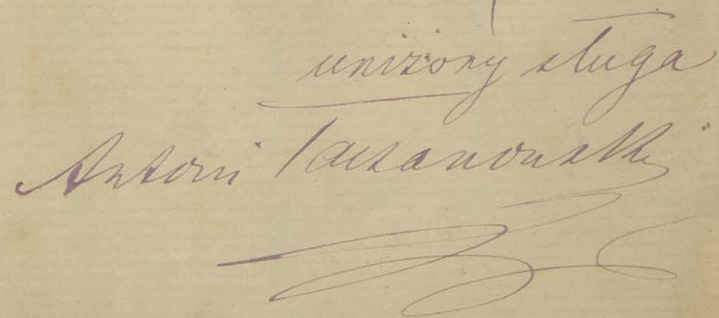 uniżony sługa
Antoni Taczanowski